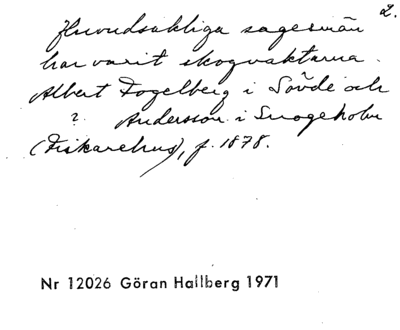 2.
Huvudsakliga sagesmän
har varit skogvaktarna
Albert Fogelberg i Sövde och
? Andersson i Snogeholm
(Fiskarehus), f. 1878.
Nr 12026 Göran Hallberg 1971